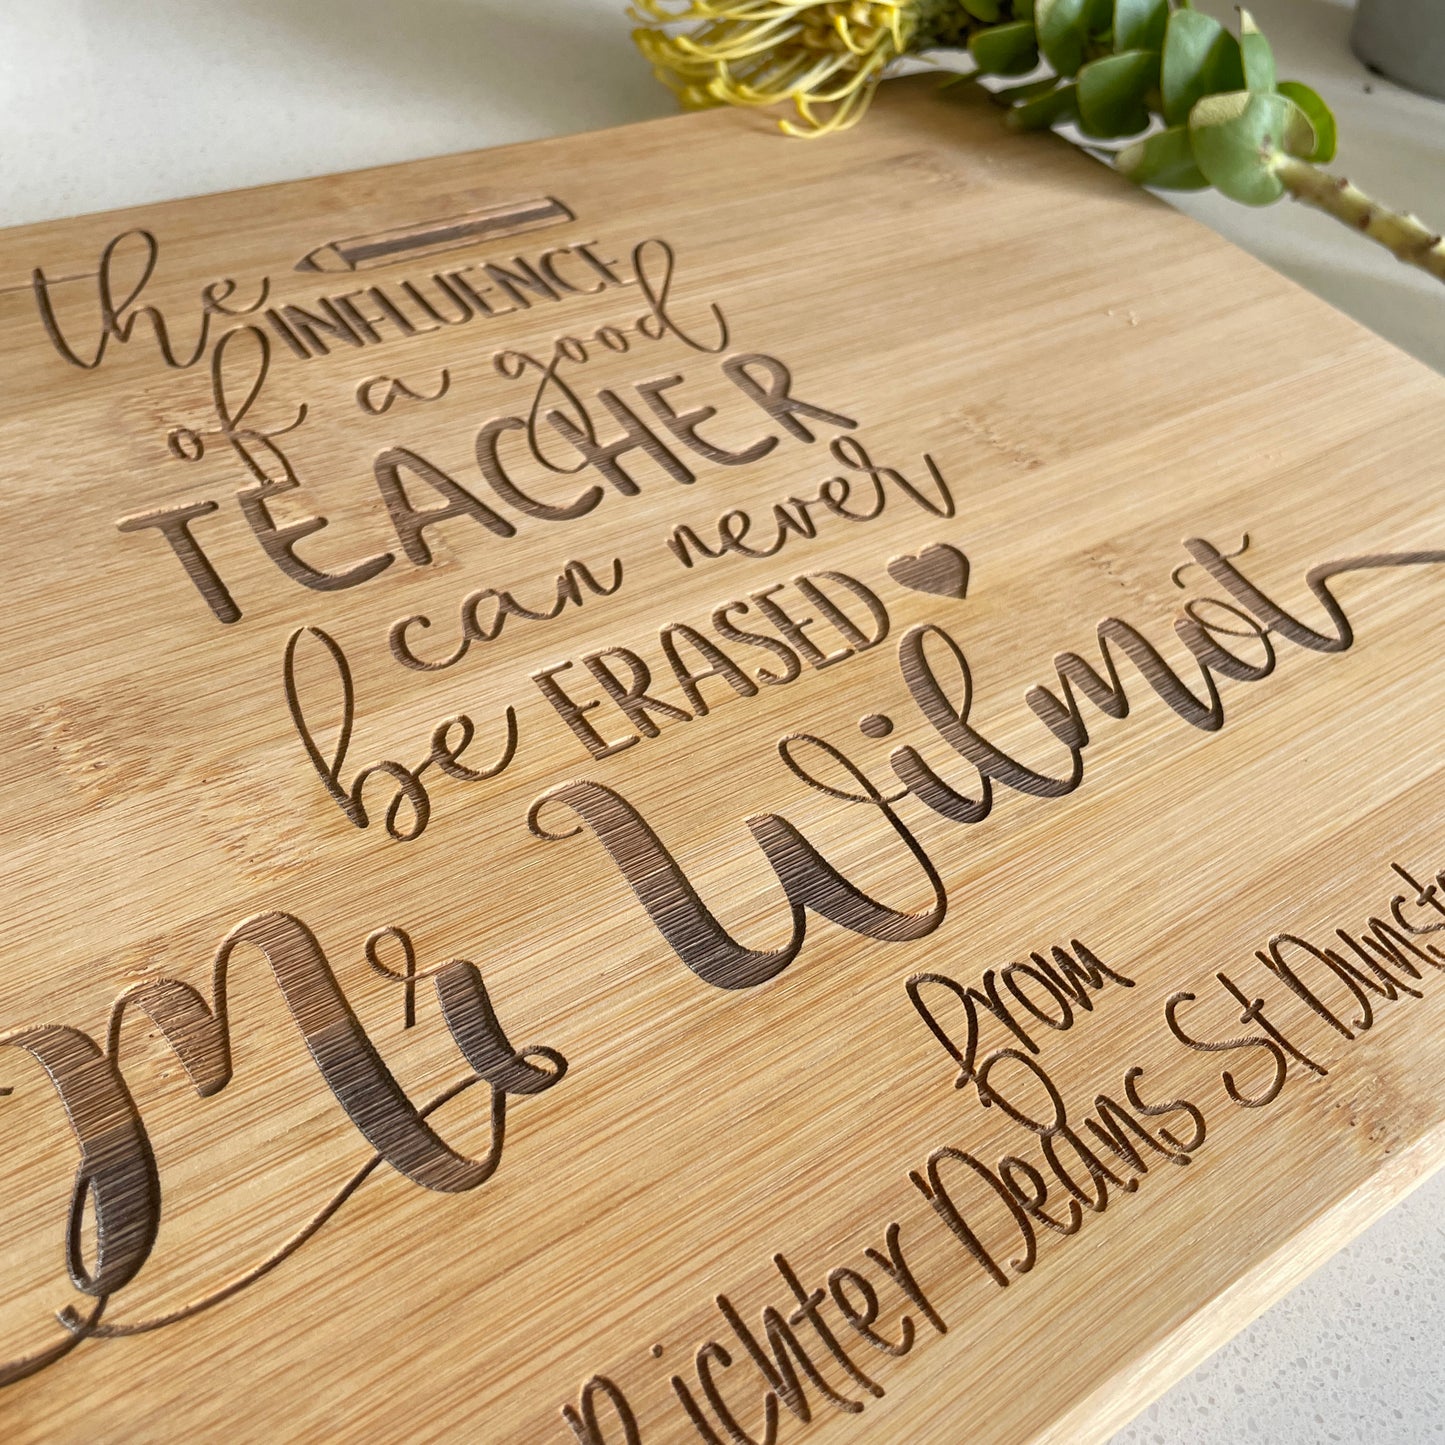 the
INFLUENCE
of a good
TEACHER
can never
be ERASED
Mr Wilmot
from
Richter Deans St